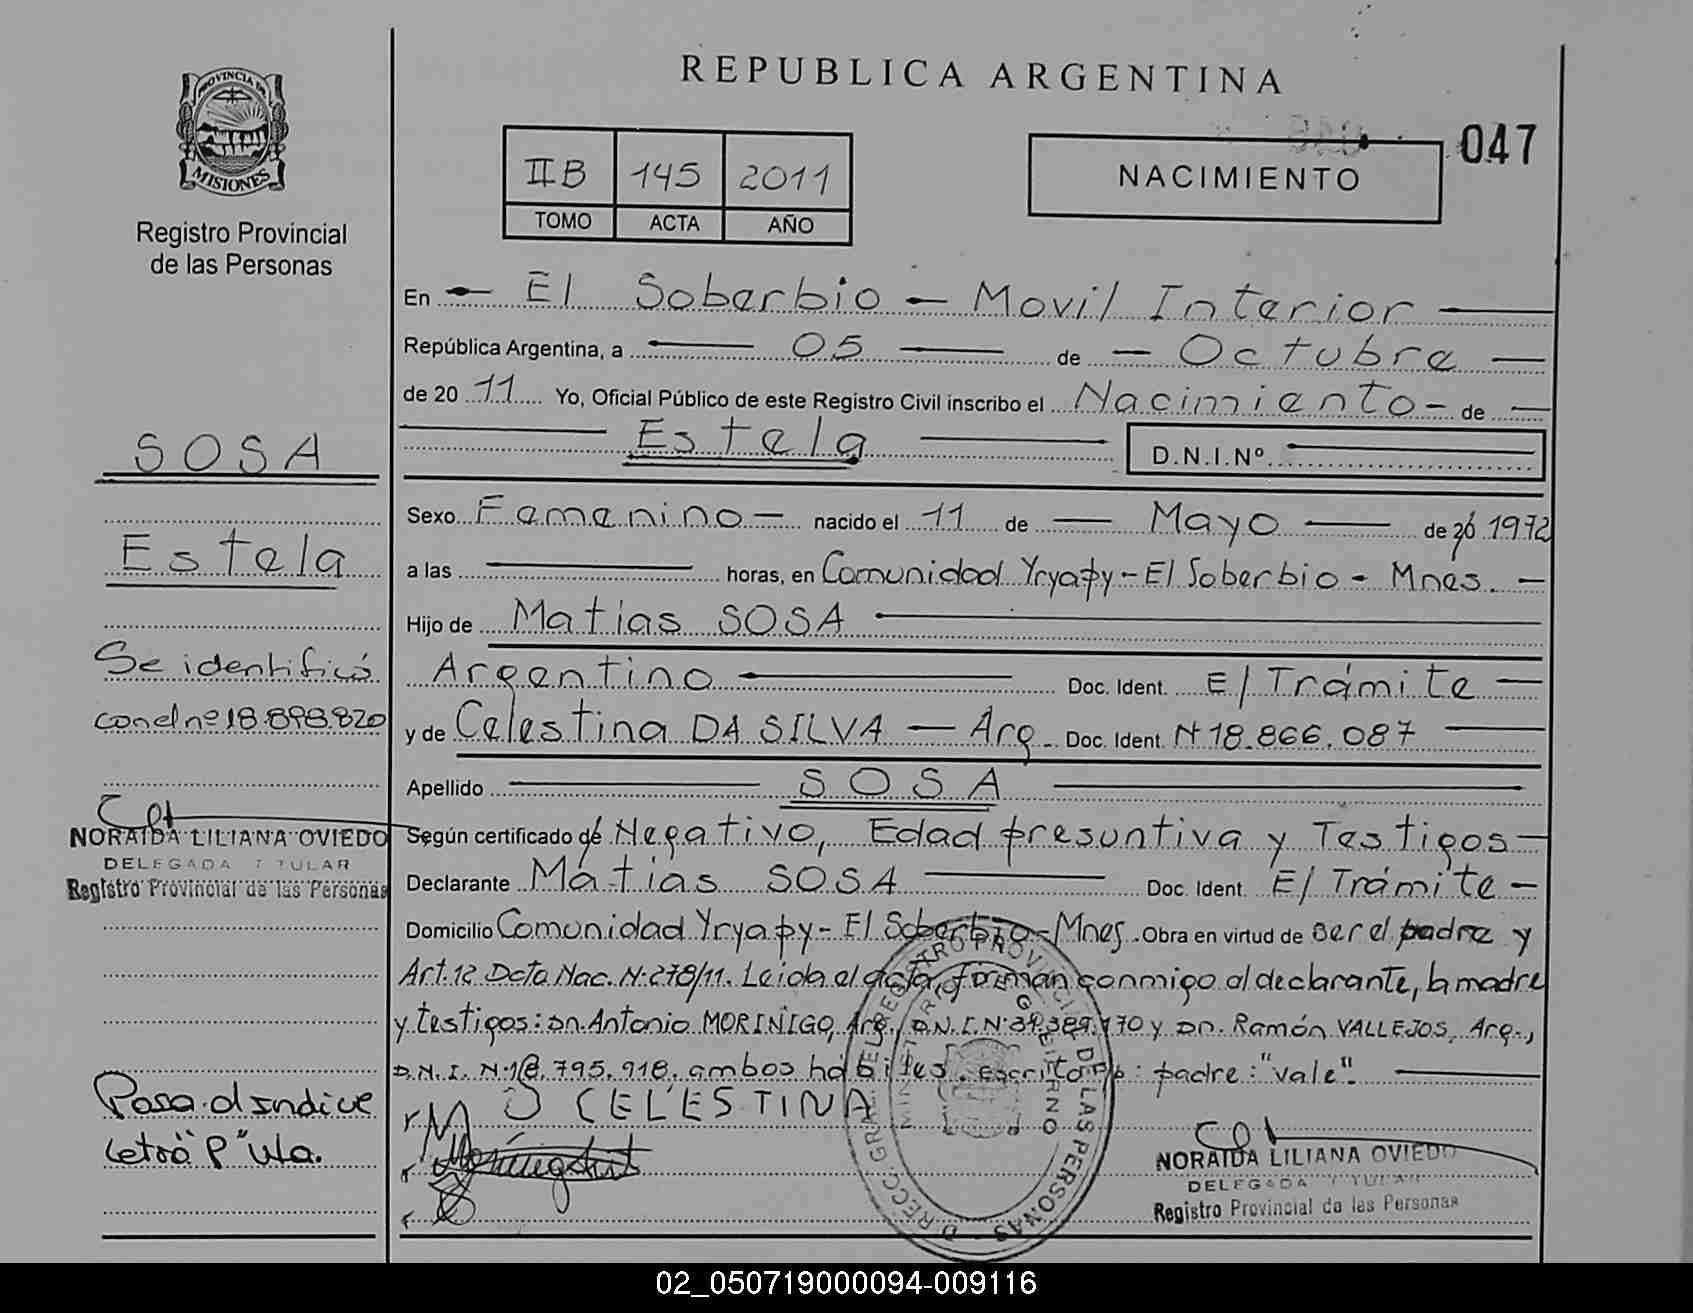 REPUBLICA ARGENTINA
PROVINCIA DE
MISIONES
Registro Provincial
de las Personas
IIB 145 2011
TOMO ACTA AÑO
NACIMIENTO
047
En El Soberbio - Movil Interior
República Argentina, a 05 de Octubre
de 20 11 Yo, Oficial Público de este Registro Civil inscribo el Nacimiento - de
Estela D.N.I.Nº
Sexo Femenino - nacido el 11 de Mayo de 20 1972
a las horas, en Comunidad Yryapy - El Soberbio - Mnes. -
Hijo de Matias SOSA
Argentino Doc. Ident. E/ Trámite
y de Celestina DA SILVA - Arg. Doc. Ident. N 18.866.087
Apellido SOSA
Según certificado de Negativo, Edad presuntiva y Testigos -
Declarante Matias SOSA Doc. Ident. E/ Trámite -
Domicilio Comunidad Yryapy - El Soberbio - Mnes. Obra en virtud de ser el padre y
Art. 12 Dcto Nac. N:278/11. Leida el acta, firman conmigo el declarante, la madre
y testigos: Dn. Antonio MORINIGO, Arg., D.N.I. N: 170 y Dn. Ramón VALLEJOS, Arg.,
D.N.I. N: 18.795.918. ambos hábiles. Escrito : padre: "vale".
CELESTINA
NORAIDA LILIANA OVIEDO
DELEGADA TITULAR
Registro Provincial de las Personas
SOSA
Estela
Se identificó
con el nº 18.898.820
NORAIDA LILIANA OVIEDO
DELEGADA TITULAR
Registro Provincial de las Personas
Pasa al Indice
Letra "P" Vta.
DIRECC. GRAL. DEL REGISTRO PROVINCIAL DE LAS PERSONAS
MINISTERIO GOBIERNO
02_050719000094-009116